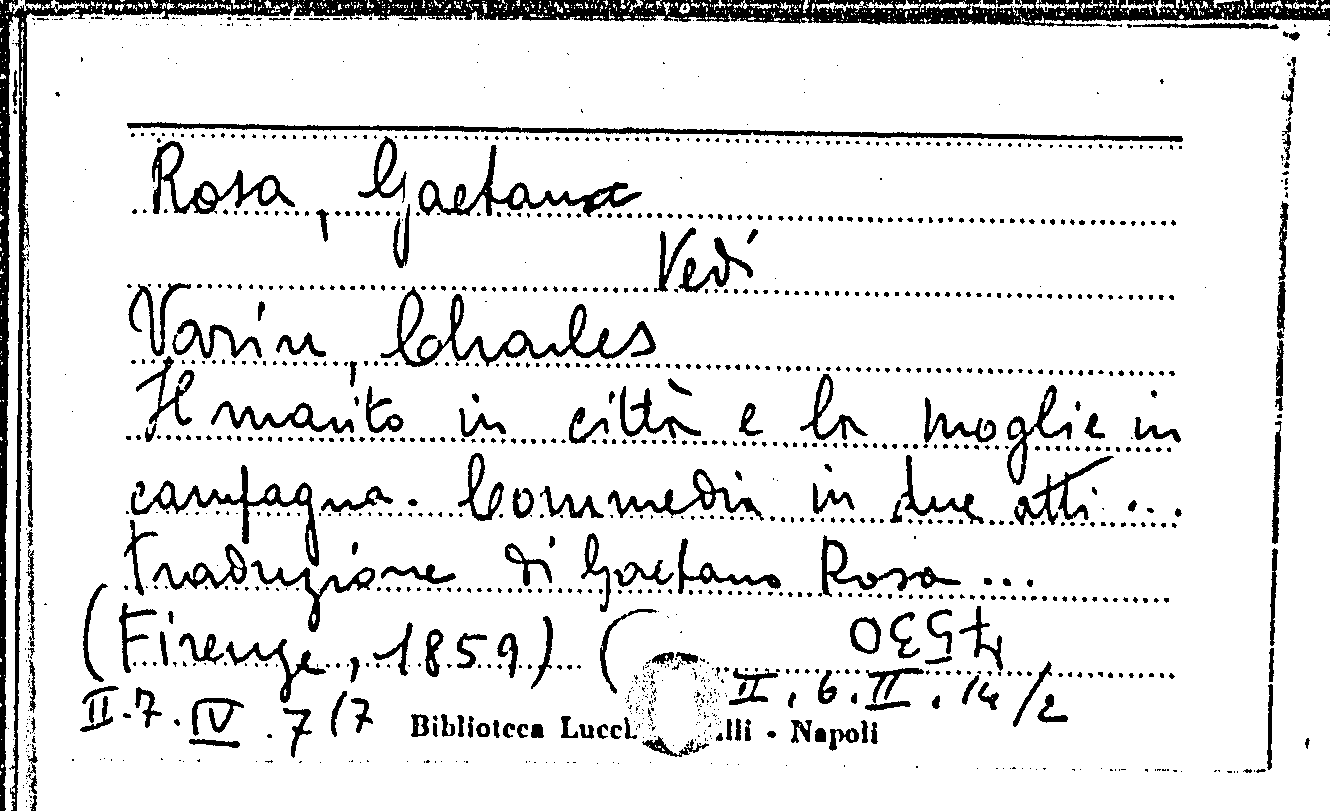 Rosa, Gaetano
Vedi
Varin, Charles
Il marito in città e la moglie in
campagna. Commedia in due atti...
traduzione di Gaetano Rosa...
(Firenze, 1859) (
47530
II.7.IV.7(7 II.6.II.14/2
Biblioteca Lucch lli - Napoli